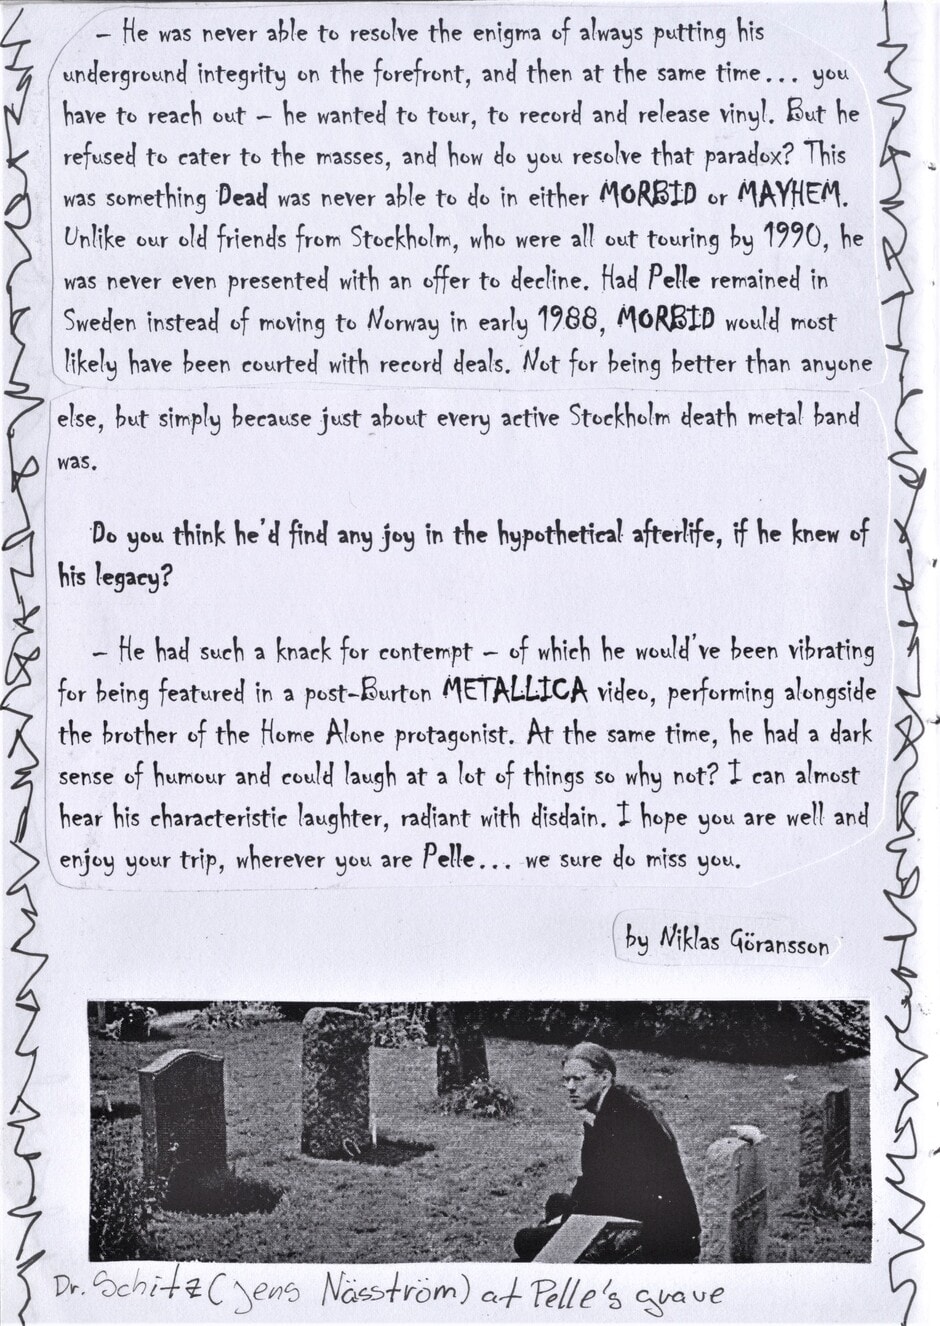 – He was never able to resolve the enigma of always putting his
underground integrity on the forefront, and then at the same time... you
have to reach out – he wanted to tour, to record and release vinyl. But he
refused to cater to the masses, and how do you resolve that paradox? This
was something Dead was never able to do in either MORBID or MAYHEM.
Unlike our old friends from Stockholm, who were all out touring by 1990, he
was never even presented with an offer to decline. Had Pelle remained in
Sweden instead of moving to Norway in early 1988, MORBID would most
likely have been courted with record deals. Not for being better than anyone
else, but simply because just about every active Stockholm death metal band
was.
Do you think he'd find any joy in the hypothetical afterlife, if he knew of
his legacy?
– He had such a knack for contempt – of which he would've been vibrating
for being featured in a post-Burton METALLICA video, performing alongside
the brother of the Home Alone protagonist. At the same time, he had a dark
sense of humour and could laugh at a lot of things so why not? I can almost
hear his characteristic laughter, radiant with disdain. I hope you are well and
enjoy your trip, wherever you are Pelle... we sure do miss you.
by Niklas Göransson
Dr. Schitz (Jens Näsström) at Pelle's grave